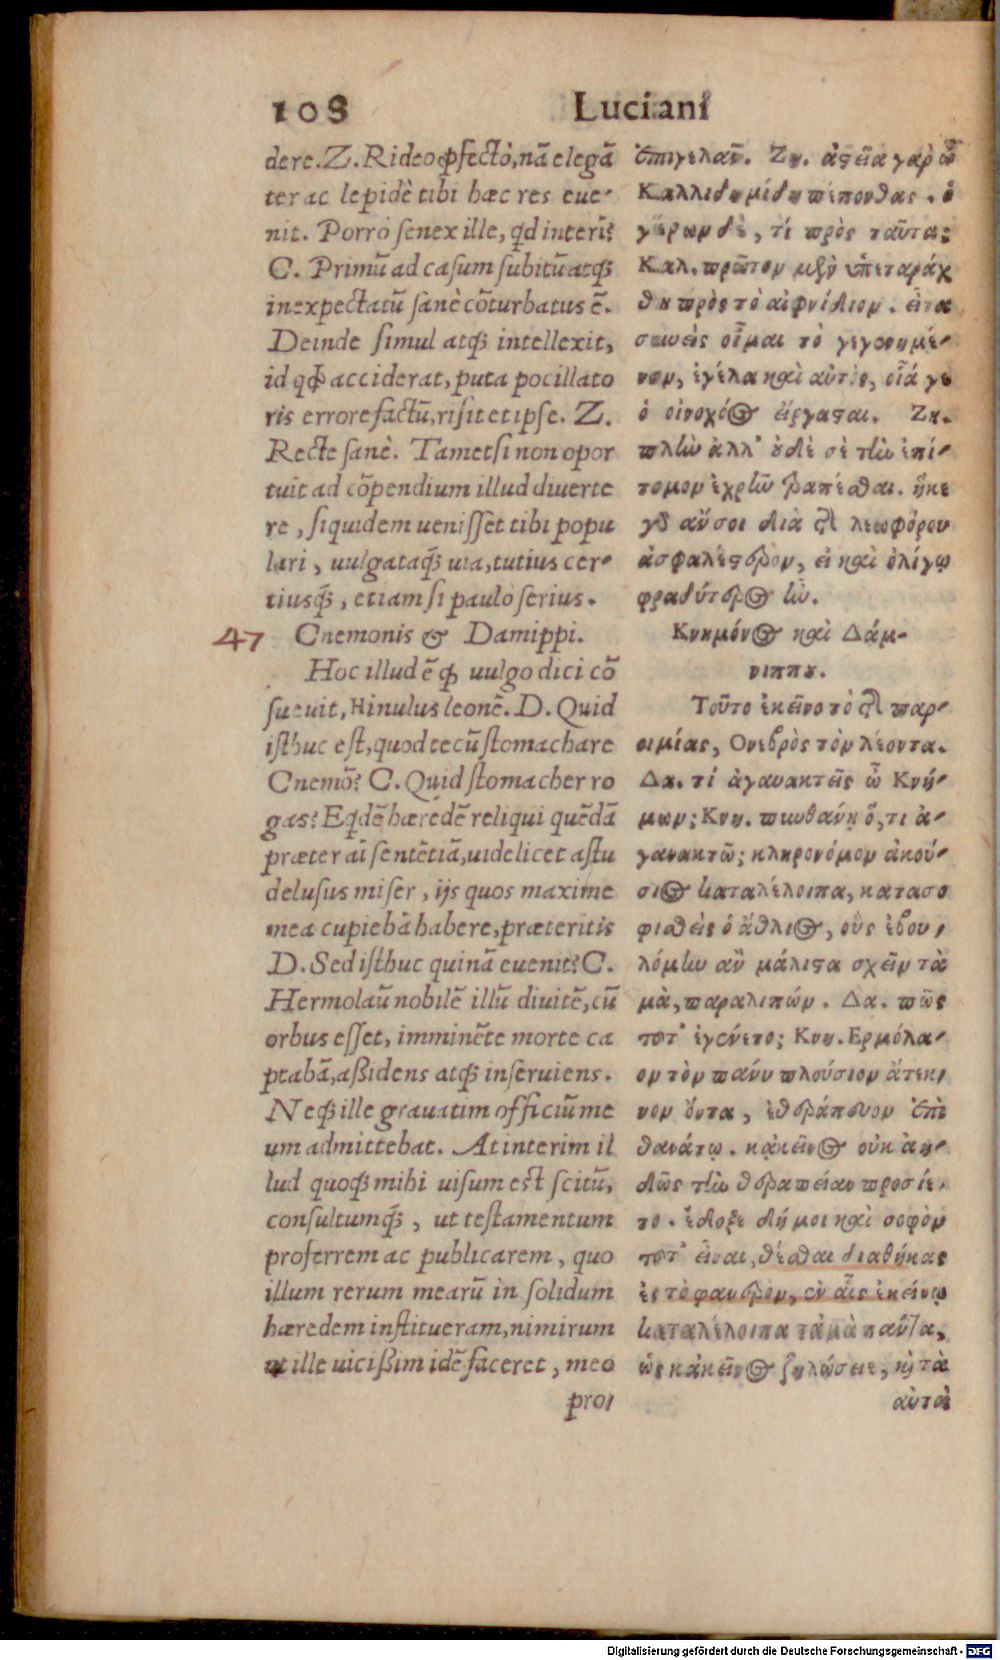 108 Luciani
dere. Z. Rideo ꝓfectò, nã elegã
ter ac lepidè tibi hæc res eue-
nit. Porrò senex ille, qd interi?
C. Primũ ad casum subitũ atq;
inexpectatũ sanè cõturbatus ẽ.
Deinde simul atq; intellexit,
id qđ acciderat, puta pocillato
ris errore factũ, risit et ipse. Z.
Recte sanè. Tametsi non opor
tuit ad cõpendium illud diuerte
re, siquidem uenisset tibi popu
lari, uulgataq; uia, tutius cer-
tiusq;, etiam si paulò serius.
47 Cnemonis & Damippi.
Hoc illud ẽ qđ uulgo dici cõ
sueuit, Hinulus leonẽ. D. Quid
isthuc est, quod tecũ stomachare
Cnemõ? C. Quid stomacher ro
gas? Eqdẽ hæredẽ reliqui quẽdã
præter aĩ sentẽtiã, uidelicet astu
delusus miser, ijs quos maxime
mea cupiebã habere, præteritis
D. Sed isthuc quinã euenit? C.
Hermolaũ nobilẽ illũ diuitẽ, cũ
orbus esset, imminẽte morte ca
ptabã, aßidens atq; inseruiens.
Neq; ille grauatim officiũ me
um admittebat. At interim il
lud quoq; mihi uisum est scitũ,
consultumq;, ut testamentum
proferrem ac publicarem, quo
illum rerum mearũ in solidum
hæredem institueram, nimirum
ut ille uicißim idẽ faceret, meo
pro-
ἐπιγελᾶν. Ζη. ἀστεῖα γὰρ ὦ
Καλλιδημίδη πέπονθας. ὁ
γέρων δὲ, τί πρὸς ταῦτα;
Καλ. πρῶτον μὲν ὑπεταράχ
θη πρὸς τὸ αἰφνίδιον. εἶτα
συνεὶς οἶμαι τὸ γεγενημέ-
νον, ἐγέλα καὶ αὐτὸς, οἷά γε
ὁ οἰνοχόος εἴργασται. Ζη.
πλὴν ἀλλ' οὐδὲ σὲ τὴν ἐπί-
τομον ἐχρῆν τραπέσθαι. ἧκε
γὸ ἄν σοι διὰ τῆ λεωφόρου
ἀσφαλέστερον, εἰ καὶ ὀλίγῳ
φραδύτερος ἦν.
Κνήμόνος καὶ Δάμ-
νιππου.
Τοῦτο ἐκεῖνο τὸ τῆ παρ-
οιμίας, Ὁ νεβρὸς τὸν λέοντα.
Δα. τί ἀγανακτεῖς ὦ Κνή-
μων; Κνη. πυνθάνῃ ὅ, τι ἀ-
γανακτῶ; κληρονόμον ἀκού-
σιος καταλέλοιπα, κατασο
φισθεὶς ὁ ἄθλιος, οὓς ἐβου-
λόμην ἂν μάλιστα σχεῖν τὰ
μὰ, παραλιπών. Δα. πῶς
τοτ' ἐγένετο; Κνη. Ερμόλα-
ον τὸν πάνυ πλούσιον ἄτεκ-
νον ὄντα, ἐθεράπευον ἐπὶ
θανάτῳ. κᾀκεῖνος οὐκ ἀη-
δῶς τὴν θεραπείαν προσίε-
το. ἔδοξε δή μοι καὶ σοφὸν
τοτ' εἶναι, θέσθαι διαθήκας
ἐς τὸ φανερὸν, ἐν αἷς ἐκείνῳ
καταλέλοιπα τἀμὰ πάντα,
ὡς κἀκεῖνος ζηλώσειε, καὶ τὰ
αὐτὰ
Digitalisierung gefördert durch die Deutsche Forschungsgemeinschaft - DFG